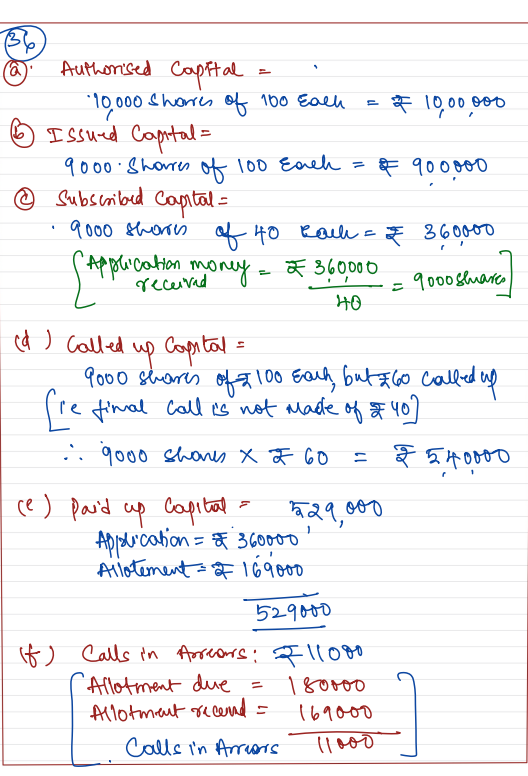 36
(a) Authorised Capital =
10,000 shares of 100 Each = ₹ 10,00,000
(b) Issued Capital =
9000 Shares of 100 Each = ₹ 900,000
(c) Subscribed Capital =
9000 shares of 40 Each = ₹ 360,000
[Application money received = ₹ 360,000 / 40 = 9000 shares]
(d) Called up Capital =
9000 shares of ₹ 100 Each, but ₹60 called up
[ie final call is not made of ₹ 40]
∴ 9000 shares × ₹ 60 = ₹ 5,40,000
(e) Paid up Capital = 529,000
Application = ₹ 360000
Allotement = ₹ 169000
529000
(f) Calls in Arrears: ₹ 11000
[Allotment due = 180000
Allotment received = 169000
Calls in Arrears 11000]